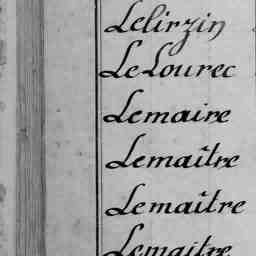 Lelirzin
Le Lourec
Lemaire
Lemaître
Lemaître
Lemaitre